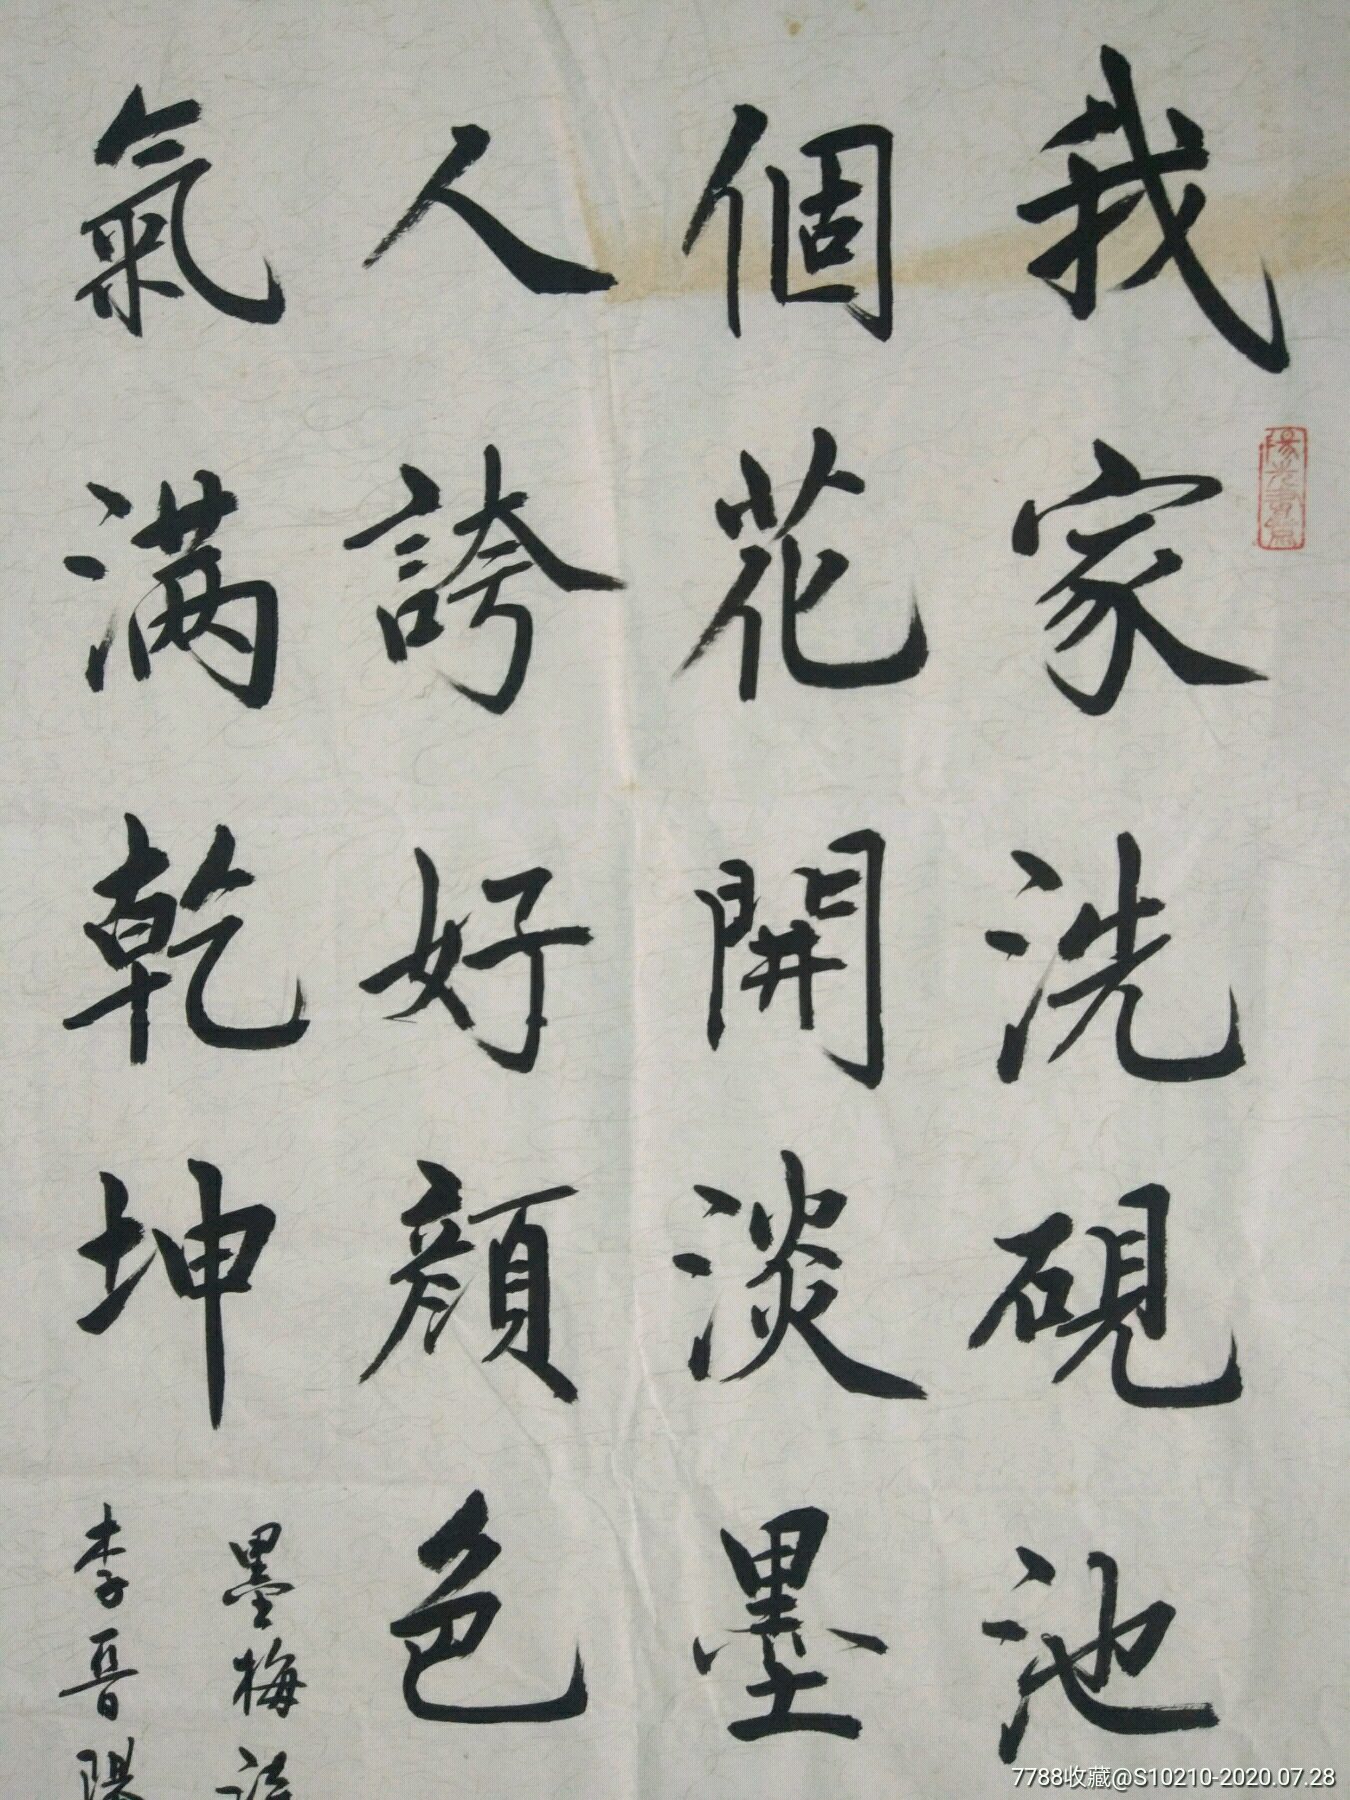 我家洗硯池
個花開淡墨
人誇好顏色
氣满乾坤
墨梅詩
李晉陽
7788收藏@S10210-2020.07.28